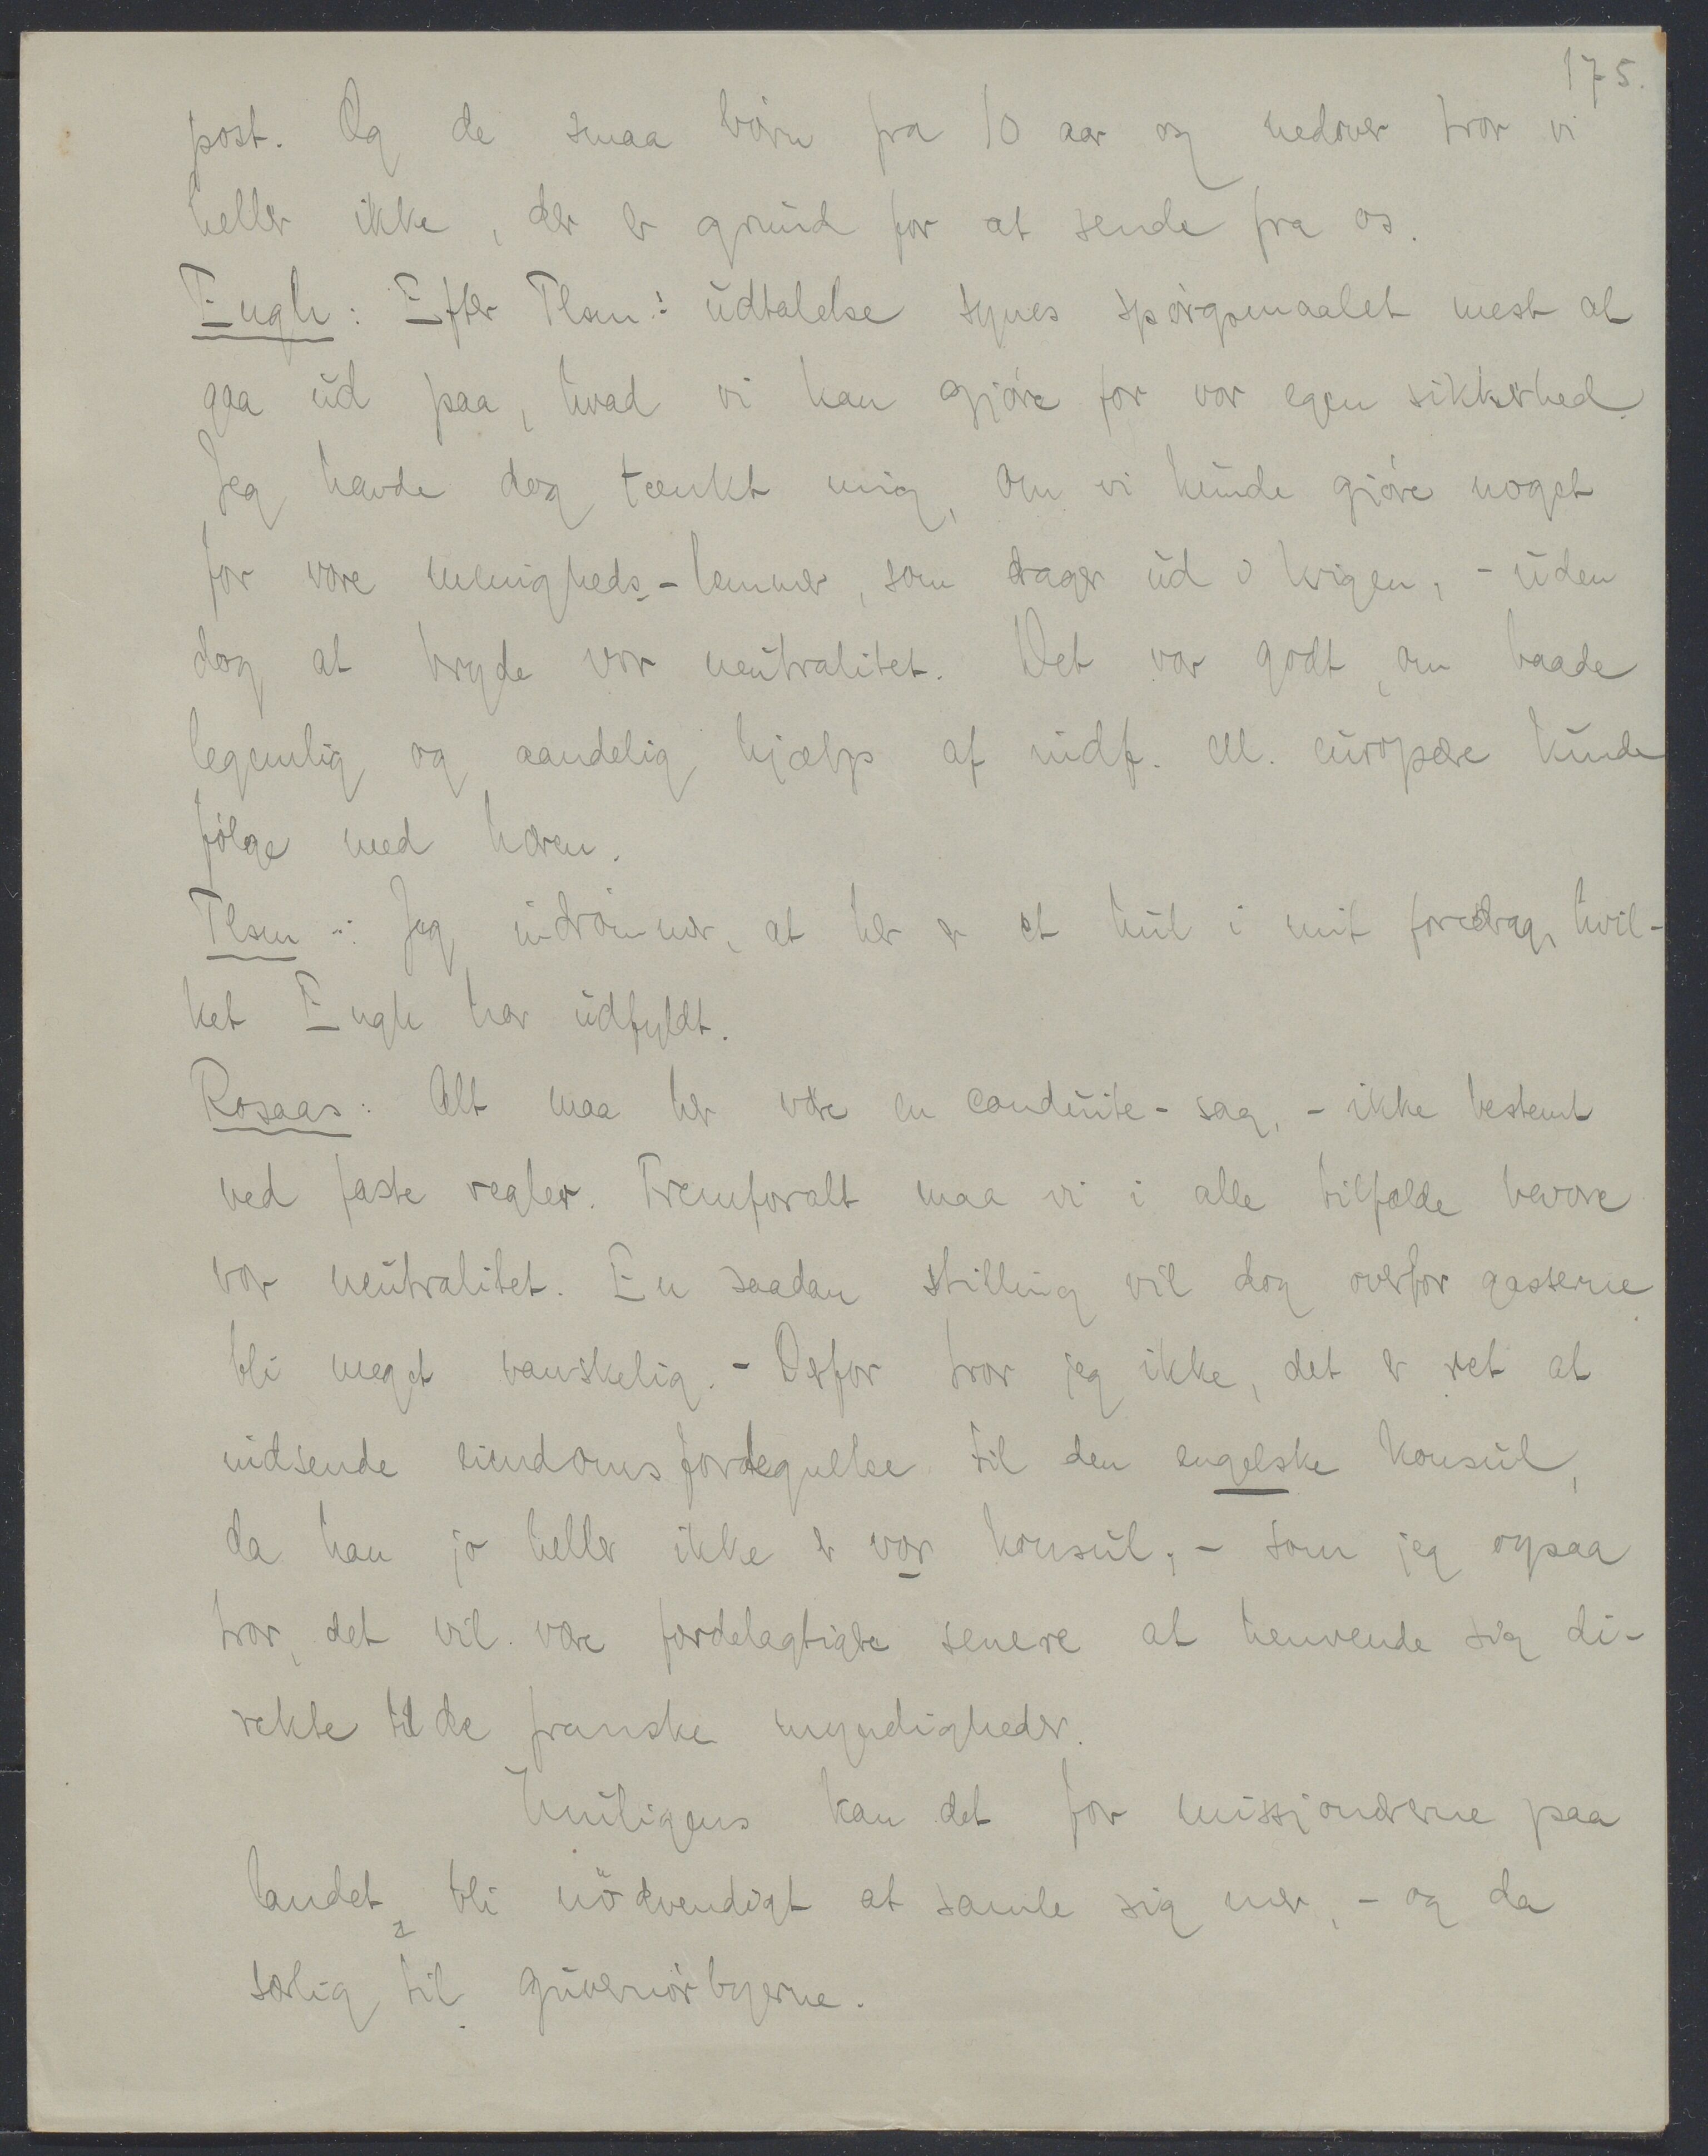 175.
post. Og de smaa börn fra 10 aar og nedover tror vi
heller ikke, der er grund for at sende fra os.
Engh: Efter Tlsen.s udtalelse synes spörgsmaalet mest at
gaa ud paa, hvad vi kan gjöre for vor egen sikkerhed.
Jeg havde dog tænkt mig, om vi kunde gjöre noget
for vore menigheds-lemmer, som drager ud i krigen, - uden
dog at bryde vor neutralitet. Det var godt, om baade
legemlig og aandelig hjælp af indf. ell. europære kunde
fölge med hæren.
Tlsen: Jeg indrömmer, at her er et hul i mit foredrag, hvil-
ket Engh har udfyldt.
Rosaas: Alt maa her være en conduite-sag, - ikke bestemt
ved faste regler. Fremforalt maa vi i alle tilfælde bevare
vor neutralitet. En saadan stilling vil dog overfor gasserne
bli meget vanskelig. - Derfor tror jeg ikke, det er ret at
indsende eiendomsfortegnelse til den engelske konsul,
da han jo heller ikke er vor konsul; - som jeg ogsaa
tror, det vil være fordelagtigere senere at henvende sig di-
rekte til de franske myndigheder.
Muligens kan det for missjonærerne paa
landet bli nödvendigt at samle sig mer, - og da
særlig til guvernörbyerne.